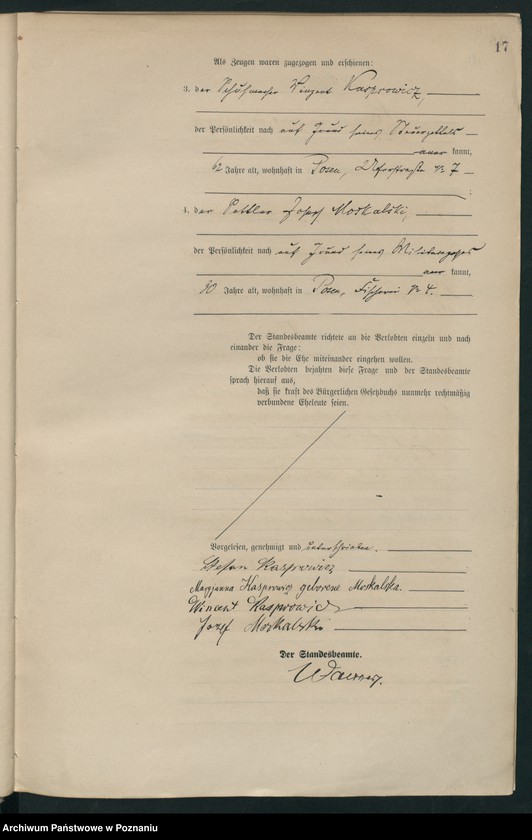 17
Als Zeugen waren zugezogen und erschienen:
3. der Schuhmacher Vinzent Kasprowicz,
der Persönlichkeit nach auf Grund seines Steuerzettels
aner kannt,
62 Jahre alt, wohnhaft in Posen, Uferstraße Nr 7
4. der Sattler Josef Moskalski,
der Persönlichkeit nach auf Grund seines Militärpasses
aner kannt,
30 Jahre alt, wohnhaft in Posen, Fischerei Nr 4.
Der Standesbeamte richtete an die Verlobten einzeln und nach
einander die Frage:
ob sie die Ehe miteinander eingehen wollen.
Die Verlobten bejahten diese Frage und der Standesbeamte
sprach hierauf aus,
daß sie kraft des Bürgerlichen Gesetzbuchs nunmehr rechtmäßig
verbundene Eheleute seien.
Vorgelesen, genehmigt und unterschrieben.
Stefan Kasprowicz
Maryanna Kasprowicz geborene Moskalska.
Wincent Kasprowicz
Jozef Moskalski
Der Standesbeamte.
Archiwum Państwowe w Poznaniu